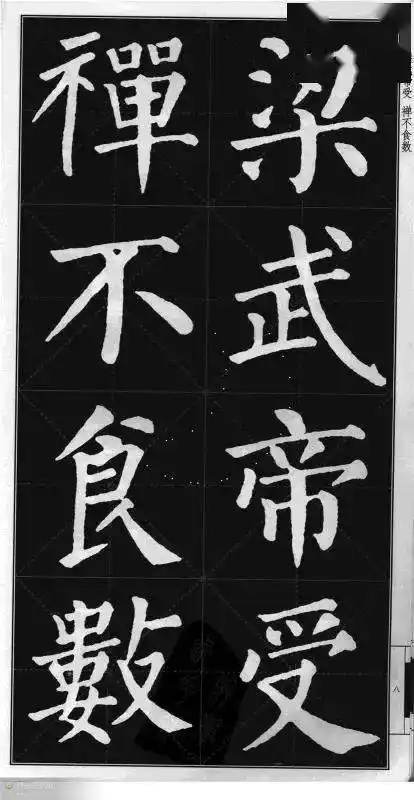 梁武帝受
禪不食數
帝受 禅不食数
八